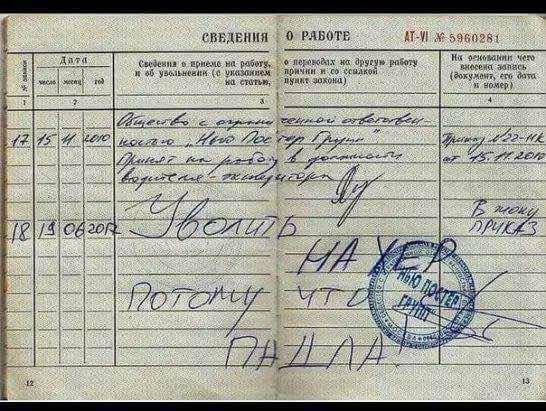 СВЕДЕНИЯ О РАБОТЕ АТ-VI № 5960281
№ записи
Дата
число месяц год
Сведения о приеме на работу, о переводах на другую работу
и об увольнении (с указанием причин и со ссылкой
на статью, пункт закона)
На основании чего
внесена запись
(документ, его дата
и номер)
1 2 3 4
Общество с ограниченной ответствен-
17 15 11 2010 ностью "Нью Постер Групп" Приказ №22-НК
Принят на работу в должности от 15.11.2010
водителя-экспедитора
18 19 06 2017 Уволить В жопу
НАХЕР ПРИКАЗ
ПОТОМУ ЧТО
ПАДЛА!
НЬЮ ПОСТЕР
ГРУПП
12 13